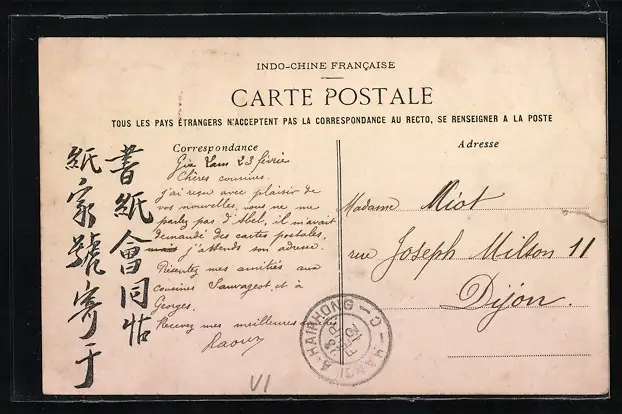 INDO-CHINE FRANÇAISE
CARTE POSTALE
TOUS LES PAYS ÉTRANGERS N'ACCEPTENT PAS LA CORRESPONDANCE AU RECTO, SE RENSEIGNER A LA POSTE
Correspondance
Gia Lam 23 février
Chères cousines.
J'ai reçu avec plaisir de
vos nouvelles, vous ne me
parlez pas d'Abel, il m'avait
demandé des cartes postales,
mais j'attends son adresse.
Présentez mes amitiés aux
cousines Sauvageot et à
Georges.
Recevez mes meilleures
Raoul
Adresse
Madame Miot
rue Joseph Milson 11
Dijon.
書紙會同帖
紙家號寄于
HANOI A HAIPHONG
VI